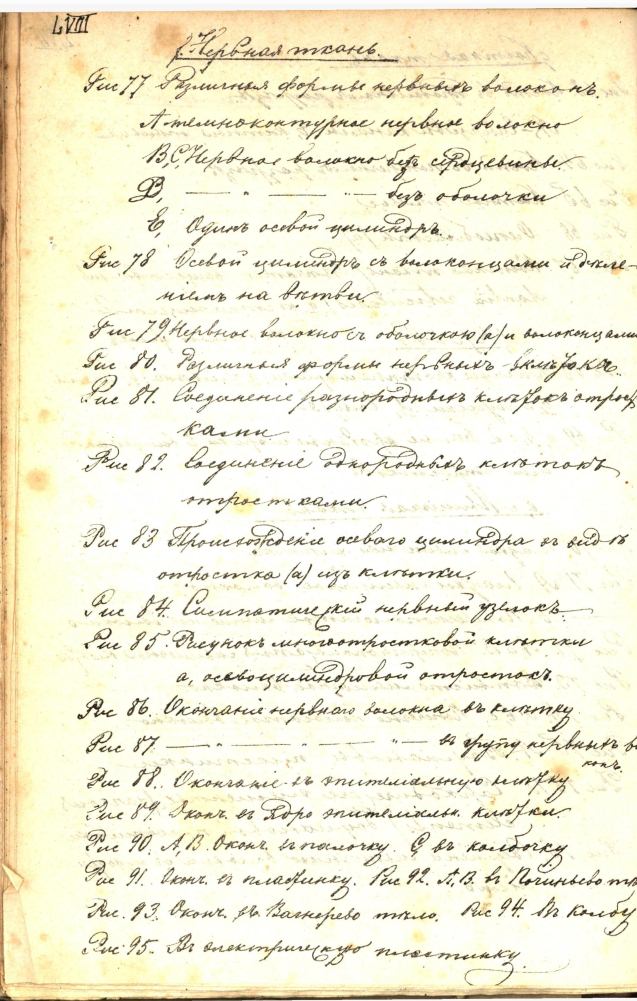 LVIII
7. Нервная ткань.
Рис 77 Различныя формы нервныхъ волоконъ.
А темноконтурное нервное волокно
В, С, Нервное волокно безъ сердцевины.
D, — " — " — безъ оболочки
Е, Одинъ осевой цилиндръ.
Рис 78 Осевой цилиндръ съ волоконцами и дѣле-
ніемъ на вѣтви.
Рис 79. Нервное волокно съ оболочкою (а) и волоконцами
Рис 80. Различныя формы нервныхъ клѣтокъ.
Рис 81. Соединеніе разнородныхъ клѣтокъ отрост
ками
Рис 82. Соединеніе однородныхъ клѣтокъ
отростками.
Рис 83 Происхожденіе осеваго цилиндра въ видѣ
отростка (а) изъ клѣтки.
Рис 84. Симпатическій нервный узелокъ
Рис 85. Рисунокъ многоотростковой клѣтки
а, осевоцилиндровой отростокъ.
Рис 86. Окончаніе нервнаго волокна въ клѣтку
Рис 87. — " — " — въ групу нервныхъ во
конч.
Рис 88. Окончаніе въ эпителіальную клѣтку
Рис 89. Оконч. въ ядро эпителіальн. клѣтки.
Рис 90. А, В Оконч. въ палочку. С, въ колбочку
Рис 91. Оконч. въ пластинку. Рис 92. А, В. въ Починьево тѣ
Рис. 93. Оконч. въ Вагнерево тѣло. Рис 94. Въ колбу
Рис 95. Въ электрическую пластинку